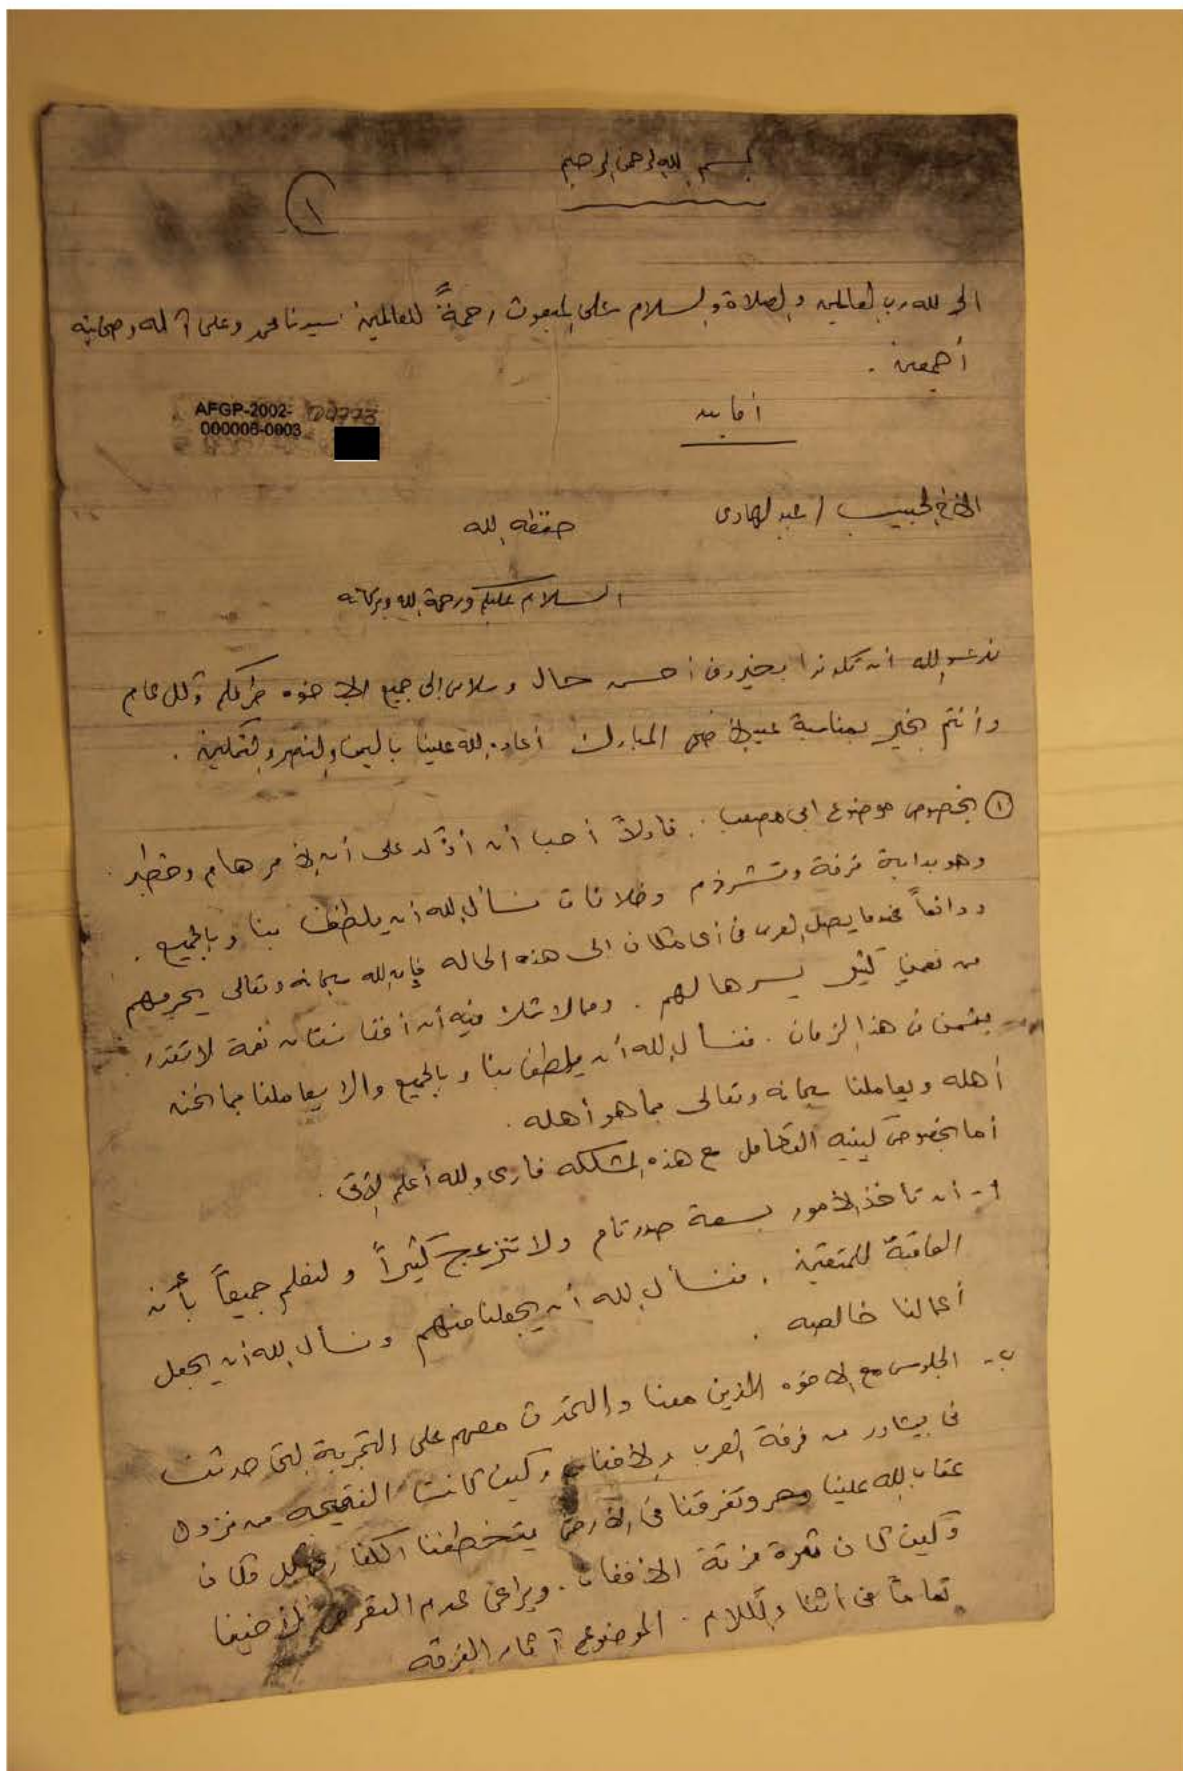 بسم الله الرحمن الرحيم
١
الحمد لله رب العالمين والصلاة والسلام على المبعوث رحمةً للعالمين سيدنا محمد وعلى آله وصحابته
أجمعين .
AFGP-2002-
000006-0003
أما بعد
الأخ الحبيب / عبد الهادى
حفظه الله
السلام عليكم ورحمة الله وبركاته
ندعو الله أن تكونوا بخير وفى أحسن حال وسلامى إلى جميع الإخوه طرفكم وكل عام
وأنتم بخير بمناسبة عيد الأضحى المبارك أعاده الله علينا باليمن والنصر والتمكين .
١ بخصوص موضوع ابى مصعب . فأولاً أحب أن أؤكد على أن الأمر هام وخطير .
وهو بداية فرقة وتشرذم وخلافات نسأل الله أن يلطف بنا وبالجميع .
ودائماً عندما يصل العرب فى أى مكان الى هذه الحاله فإن الله سبحانه وتعالى يحرمهم
من نعم كثير يسرها لهم . ومما لا شك فيه أن أفغانستان نعمة لا تقدر
بثمن فى هذا الزمان . فنسأل الله أن يلطف بنا وبالجميع والا يعاملنا بما نحن
أهله ويعاملنا سبحانه وتعالى بما هو أهله .
أما بخصوص كيفيه التعامل مع هذه المشكله فأرى والله أعلم الآتى .
أ - أن تأخذ الأمور بسعة صدر تام ولا تنزعج كثيراً ولنعلم جميعاً بأن
العاقبة للمتقين . فنسأل الله أن يجعلنا منهم ونسأل الله أن يجعل
أعمالنا خالصه .
ب - الجلوس مع الإخوه الذين معنا والتحدث معهم على التجربة التى حدثت
فى بيشاور من فرقة العرب والأفغان وكيف كانت النتيجه من نزول
عقاب الله علينا وتفرقنا فى الأرض يتخطفنا الكفار فى كل مكان
وكيف كان ثمرة فرقة الأفغان . ويراعى عدم التعرض لأخينا
تماماً فى أثناء الكلام . الموضوع آثار الفرقه